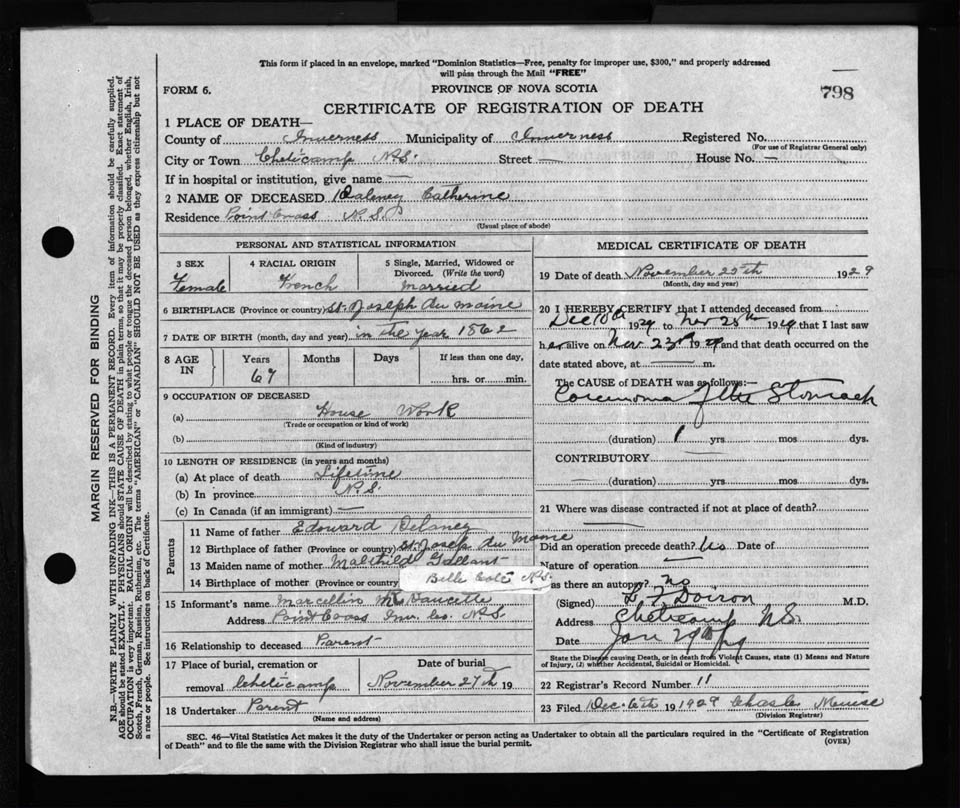 This form if placed in an envelope, marked "Dominion Statistics—Free, penalty for improper use, $300," and properly addressed
will pass through the Mail "FREE"
FORM 6.
PROVINCE OF NOVA SCOTIA
798
CERTIFICATE OF REGISTRATION OF DEATH
1 PLACE OF DEATH—
County of Inverness Municipality of Inverness Registered No.
(For use of Registrar General only)
City or Town Cheticamp N.S. Street — House No. —
If in hospital or institution, give name —
2 NAME OF DECEASED Delaney Catherine
Residence Point Cross N.S.
(Usual place of abode)
PERSONAL AND STATISTICAL INFORMATION
3 SEX 4 RACIAL ORIGIN 5 Single, Married, Widowed or
Divorced. (Write the word)
Female French Married
6 BIRTHPLACE (Province or country) St. Joseph du Moine
7 DATE OF BIRTH (month, day and year) in the year 1862
8 AGE IN Years Months Days If less than one day,
67 hrs. or min.
9 OCCUPATION OF DECEASED
(a) House Work
(Trade or occupation or kind of work)
(b)
(Kind of industry)
10 LENGTH OF RESIDENCE (in years and months)
(a) At place of death Lifetime
(b) In province N.S.
(c) In Canada (if an immigrant) —
Parents
11 Name of father Edouward Delaney
12 Birthplace of father (Province or country) St. Joseph du Moine
13 Maiden name of mother Gallant
14 Birthplace of mother (Province or country Belle Cote N.S.
15 Informant's name Marcellin Doucette
Address Point Cross Inv. Co. N.S.
16 Relationship to deceased Parent
17 Place of burial, cremation or Date of burial
removal Cheticamp November 27th 19
18 Undertaker Parent
(Name and address)
MEDICAL CERTIFICATE OF DEATH
19 Date of death November 25th 1929
(Month, day and year)
20 I HEREBY CERTIFY that I attended deceased from
Dec 1929 to Nov 25th 1929 that I last saw
her alive on Nov 23rd 1929 and that death occurred on the
date stated above, at m.
The CAUSE OF DEATH was as follows:—
Carcinoma of the Stomach
(duration) 1 yrs. mos. dys.
CONTRIBUTORY
(duration) yrs. mos. dys.
21 Where was disease contracted if not at place of death?
Did an operation precede death? No Date of
Nature of operation —
as there an autopsy? no
(Signed) L F Doiron M.D.
Address Cheticamp N.S.
Date Jan 29
State the Disease causing Death, or in death from Violent Causes, state (1) Means and Nature
of Injury, (2) whether Accidental, Suicidal or Homicidal.
22 Registrar's Record Number 11
23 Filed Dec. 6th 1929 Charles
(Division Registrar)
SEC. 46—Vital Statistics Act makes it the duty of the Undertaker or person acting as Undertaker to obtain all the particulars required in the "Certificate of Registration
of Death" and to file the same with the Division Registrar who shall issue the burial permit.
(OVER)
MARGIN RESERVED FOR BINDING
N.B.—WRITE PLAINLY WITH UNFADING INK—THIS IS A PERMANENT RECORD. Every item of information should be carefully supplied.
AGE should be stated EXACTLY. PHYSICIANS should STATE CAUSE OF DEATH in plain terms, so that it may be properly classified. Exact statement of
OCCUPATION is very important. RACIAL ORIGIN will be described by stating to what people or tongue the deceased person belonged, whether English, Irish,
Scotch, French, German, Russian, Ruthenian, etc. The terms "AMERICAN" or "CANADIAN" SHOULD NOT BE USED as they express citizenship but not
a race or people. See instructions on back of Certificate.